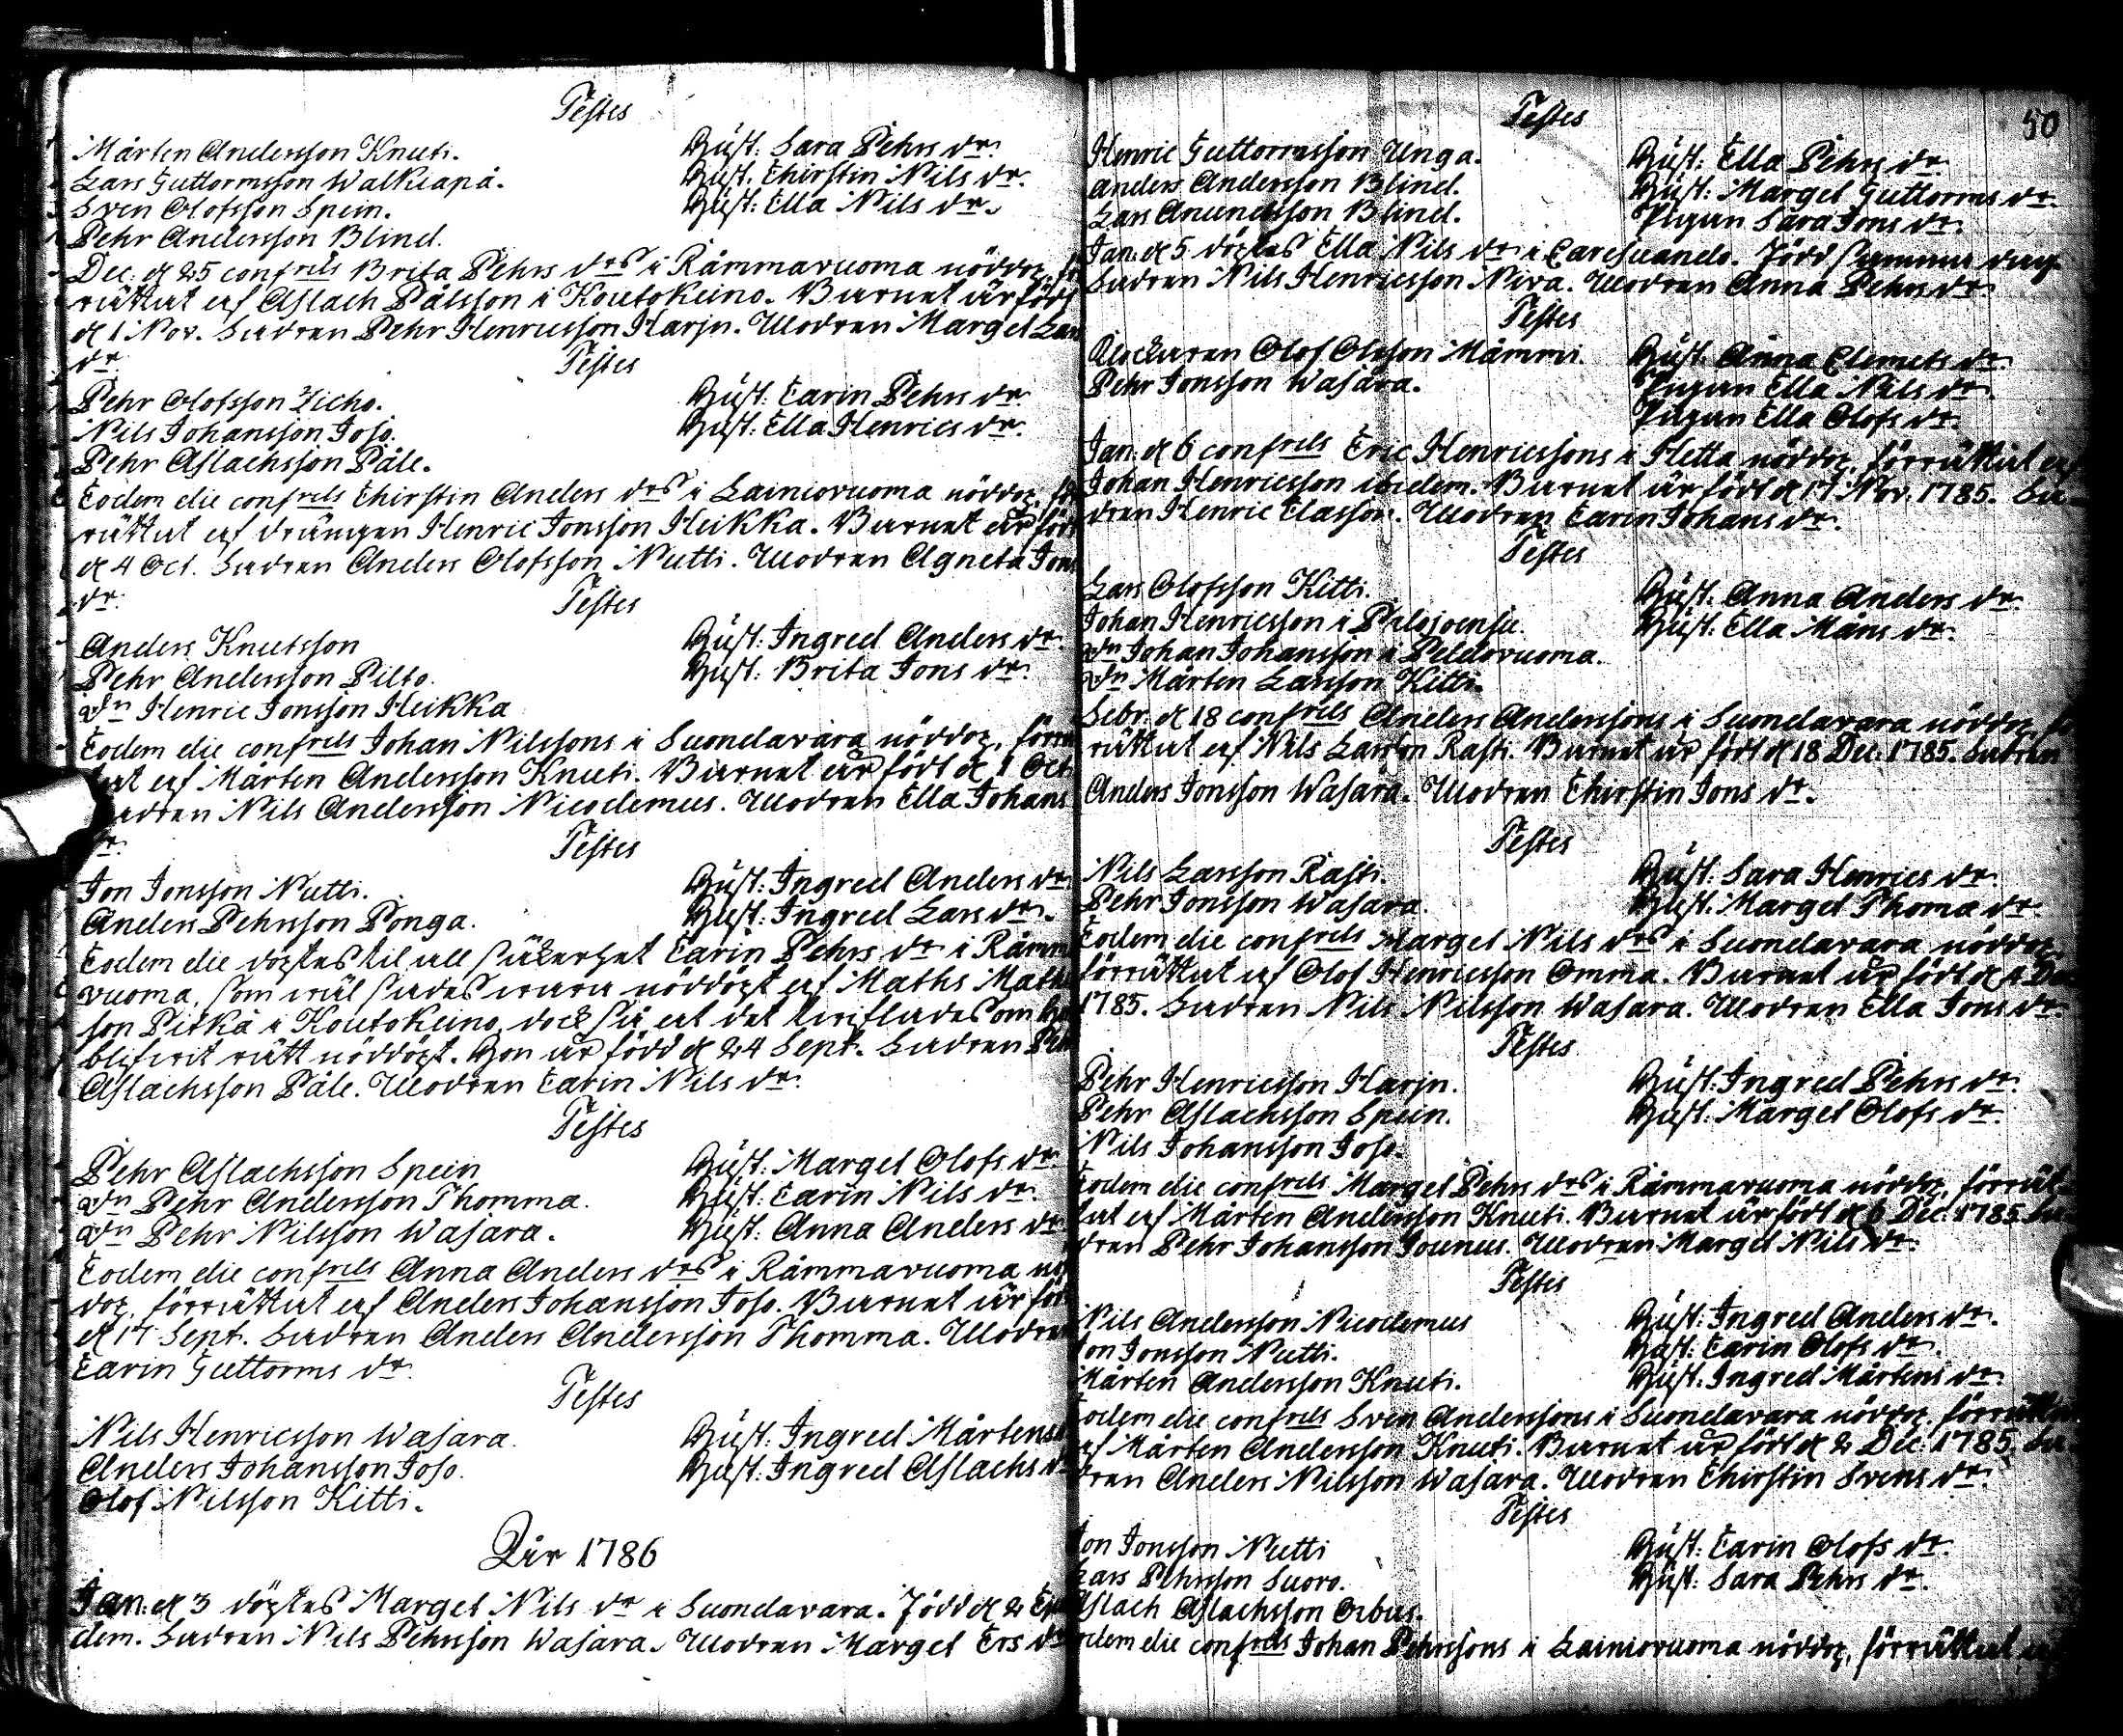 Testes
Mårten Andersson Knuti. Hust: Sara Pehrs dr.
Lars Guttormsson Walkiapä. Hust. Chirstin Nils dr.
Sven Olofsson Spein. Hust: Ella Nils dr.
Pehr Andersson Blind.
Dec. d 25 confrels Brita Pehrs drs i Råmmavuoma nöddop, för
rättat af Aslach Pålsson i Koutokeino. Barnet är född
d 1 Nov. Fadren Pehr Henricsson Harju. Modren Margel Lars
dr.
Testes
Pehr Olofsson Zicho. Hust: Carin Pehrs dr.
Nils Johansson Joso. Hust: Ella Henrics dr.
Pehr Aslachsson Påle.
Eodem die confrels Chirstin Anders drs i Lainiovuoma nöddop. för
rättat af drängen Henric Jonsson Heikka. Barnet är född
d 4 Oct. Fadren Anders Olofsson Nutti. Modren Agneta Jons
dr.
Testes
Anders Knutsson Hust: Ingred Anders dr.
Pehr Andersson Pilto. Hust: Brita Jons dr.
Dn Henric Jonsson Heikka
Eodem die confrels Johan Nilssons i Suondavara nöddop, förrä
tat af Mårten Andersson Knuti. Barnet är födt d 1 Oct.
Fadren Nils Andersson Nicodemus. Modren Ella Johans
dr.
Testes
Jon Jonsson Nutti. Hust: Ingred Anders dr
Anders Pehrsson Ponga. Hust: Ingred Lars dr.
Eodem die döptes til all säkerhet Carin Pehrs dr i Råmma
vuoma, som wäl sades wara nöddöpt af Maths Maths
son Pitkä i Koutokeino, dock så at det twiflades om
blifwit rätt nöddöpt. Hon är född d 24 Sept. Fadren Pehr
Aslachsson Påle. Modren Carin Nils dr.
Testes
Pehr Aslachsson Spein Hust: Margel Olofs dr.
Dn Pehr Andersson Thomma. Hust: Carin Nils dr.
Dn Pehr Nilsson Wasara. Hust: Anna Anders dr
Eodem die confrels Anna Anders drs i Råmmavuoma nöd
dop, förrättat af Anders Johansson Joso. Barnet är född
d 17 Sept. Fadren Anders Andersson Thomma. Modren
Carin Guttorms dr.
Testes
Nils Henricsson Wasara. Hust: Ingred Mårtens
Anders Johansson Joso. Hust: Ingred Aslachs dr
Olof Nilsson Kitti.
Åhr 1786
Jan: d 3 döptes Margel Nils dr i Suondavara. Född d 2
dem. Fadren Nils Pehrsson Wasara. Modren Margel Ers dr
50
Testes
Henric Guttormsson Unga. Hust: Ella Pehrs dr.
Anders Andersson Blind. Hust: Margel Guttorms dr.
Lars Amundsson Blind. Pigan Sara Jons dr.
Jan. d 5 döptes Ella Nils dr i Caresuando. Född samma dag.
Fadren Nils Henricsson Niva. Modren Anna Pehrs dr.
Testes
Klockaren Olof Olsson Mämmi. Hust: Anna Clemets dr.
Pehr Jonsson Wasara. Pigan Ella Nils dr.
Pigan Ella Olofs dr.
Jan: d 6 confrels Eric Henricssons i Hetta nöddop, förrättat af
Johan Henricsson ibidem. Barnet är födt d 17 Nov. 1785. Fa-
dren Henric Classon. Modren Carin Johans dr.
Testes
Lars Olofsson Kitti. Hust. Anna Anders dr.
Johan Henricsson i Hust: Ella Måns dr.
Dn Johan Johansson i Peldovuoma.
Dn Mårten Larsson Kitti.
Febr. d 18 confrels Anders Anderssons i Suondavara nöddop, för
rättat af Nils Larsson Rasti. Barnet är födt d 18 Dec. 1785. Fadren
Anders Jonsson Wasara. Modren Chirstin Jons dr.
Testes
Nils Larsson Rasti. Hust: Sara Henrics dr.
Pehr Jonsson Wasara. Hust. Margel Thoma dr.
Eodem die confrels Margel Nils drs i Suondavara nöddop,
förrättat af Olof Henricsson Omma. Barnet är födt d 4 Dec.
1785. Fadren Nils Nilsson Wasara. Modren Ella Jons dr.
Testes
Pehr Henricsson Harju. Hust: Ingred Pehrs dr.
Pehr Aslachsson Spein. Hust: Margel Olofs dr.
Nils Johansson Joso.
Eodem die confrels Margel Pehrs drs i Råmmavuoma nöddop, förrät-
tat af Mårten Andersson Knuti. Barnet är födt d 6 Dec. 1785. Fa-
dren Pehr Johansson Jounus. Modren Margel Nils dr.
Testes
Nils Andersson Nicodemus Hust: Ingred Anders dr.
Jon Jonsson Nutti. Hust: Carin Olofs dr.
Mårten Andersson Knuti. Hust: Ingred Mårtens dr.
Eodem die confrels Sven Anderssons i Suondavara nöddop, förrättat
af Mårten Andersson Knuti. Barnet är födt d 2 Dec: 1785. Fa-
dren Anders Nilsson Wasara. Modren Chirstin Svens dr.
Testes
Jon Jonsson Nutti Hust: Carin Olofs dr.
Lars Pehrsson Suoro. Hust: Sara Pehrs dr.
Aslach Aslachsson Orbus.
Eodem die confrels Johan Pehrssons i Lainiovuoma nöddop, förrättat af